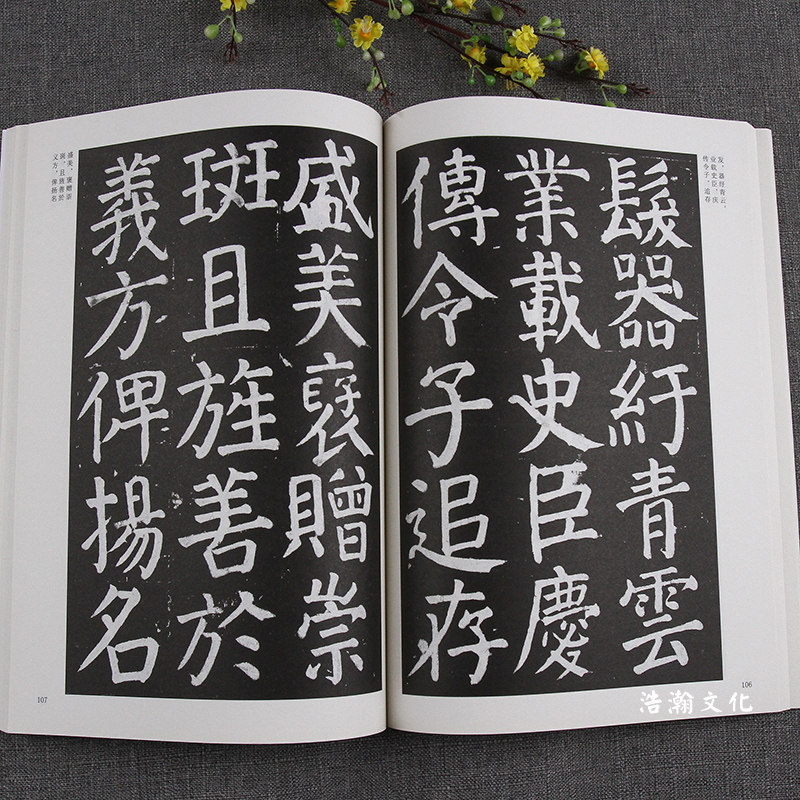 髮器紆青雲
業載史臣慶
傳令子追存
发，器纡青云，
业载史臣，庆
传令子，追存
106
盛美褒贈崇
斑且旌善於
義方俾揚名
盛美，褒赠崇
斑，且旌善於
义方，俾扬名
107
浩瀚文化